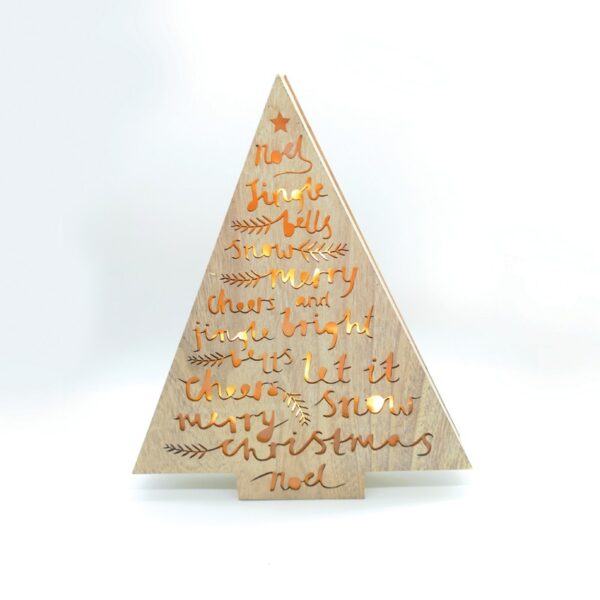 Noel
Jingle
bells
snow
merry
cheers and
jingle bright
bells let it
cheers snow
merry
christmas
noel